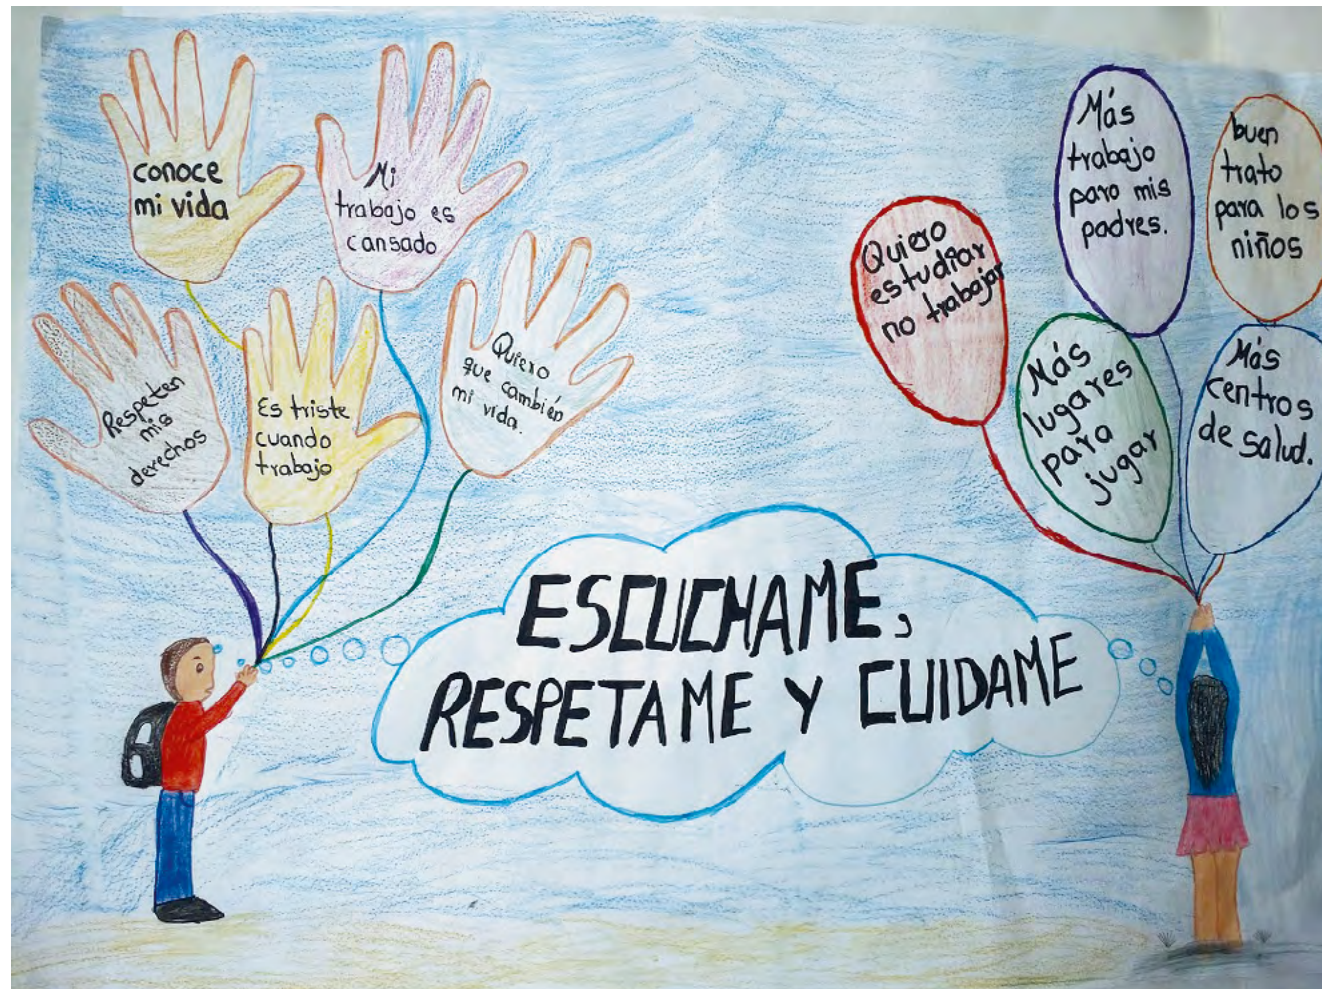 conoce
mi vida
Mi
trabajo es
cansado
Respeten
mis
derechos
Es triste
cuando
trabajo
Quiero
que cambién
mi vida.
Quiero
estudiar
no trabajar
Más
trabajo
paro mis
padres.
buen
trato
para los
niños
Más
lugares
para
jugar
Más
centros
de salud.
ESCUCHAME,
RESPETAME Y CUIDAME